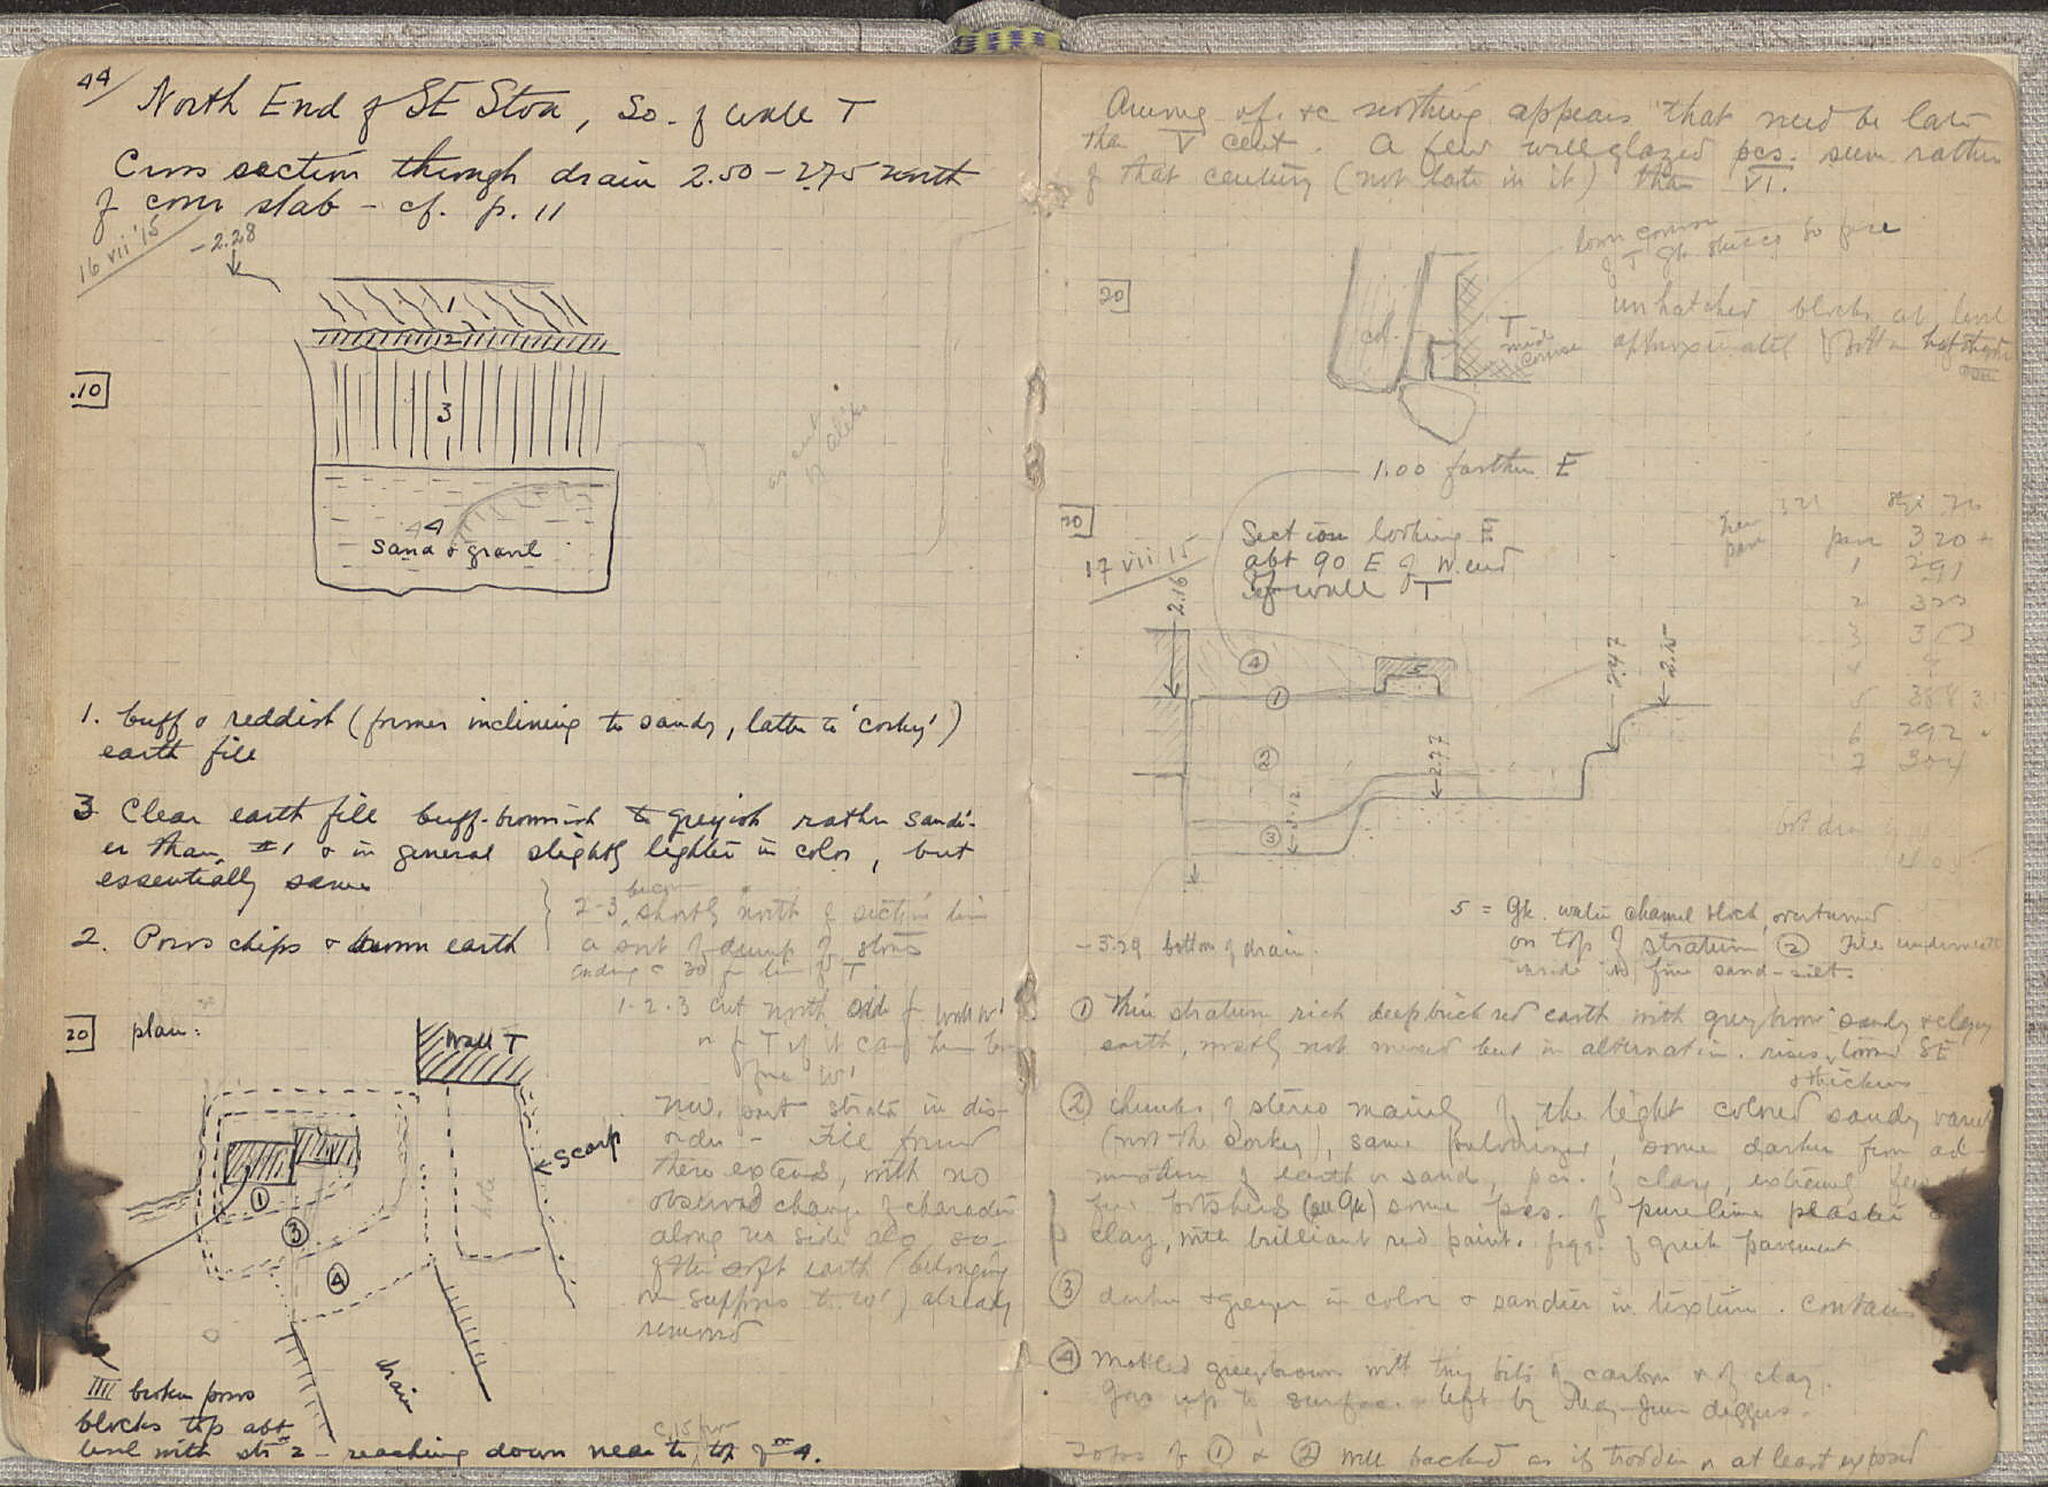 44/
North End of SE Stoa, So. of Wall T
Cross section through drain 2.50 – 2.75 north
of cover slab – cf. p. 11
16 vii '15
-2.28
1
2
.10
3
4
sand & gravel
1. buff & reddish (former inclining to sandy, latter to 'corky')
earth fill
3 Clear earth fill buff-brownish to greyish rather sandi-
er than #1 & in general slightly lighter in color, but
essentially same
2. Poros chips & brown earth
2-3 began shortly north of section line
a sort of dump of stones
ending c 30 fr line of T
20 plan:
1-2-3 cut north side of wall W'
Wall T
NW. part strata in dis-
order – Fill found
there extends, with no
observed change of character
along W side also so-
of the soft earth (belonging
we suppose to W') already
removed
scarp
hole
1
3
4
drain
IIII broken poros
blocks top abt
level with str 2 – reaching down near to top of 4.
nothing appears that need be later
than V cent. A few well glazed pcs. seem rather
of that century (not late in it) than VI.
20
col.
T
mid
course
lower course
of T Gk stucco So face
unhatched blocks at level
1.00 farther E
20
17 vii 15
Section looking E
abt 90 E of W. end
of wall T
2.16
4
1
5
2
3
2.77
2.47
2.25
320+
1 291
2
3
4
5 388
6 292
7 304
-3.29 bottom of drain.
5 = Gk. water channel block, overturned
on top of stratum 2 Fill underneath
inside is fine sand-silt.
1 thin stratum rich deep brick red earth with grey brown sandy & clayey
earth, mostly not mixed but in alternation. rises toward SE
& thickens
2 chunks of stereo mainly of the light colored sandy variety
(not the corky), some pulverized, some darker from ad-
mixture of earth or sand, pcs. of clay, extremely few
potsherds (all Gk) some pcs. of pure lime plaster
clay, with brilliant red paint. frgs. of Greek pavement
3 darker & greyer in color & sandier in texture. Contains
4 Mottled grey brown with tiny bits of carbon & of clay.
Goes up to surface left by May-June diggers.
Tops of 1 & 2 well packed as if trodden or at least exposed